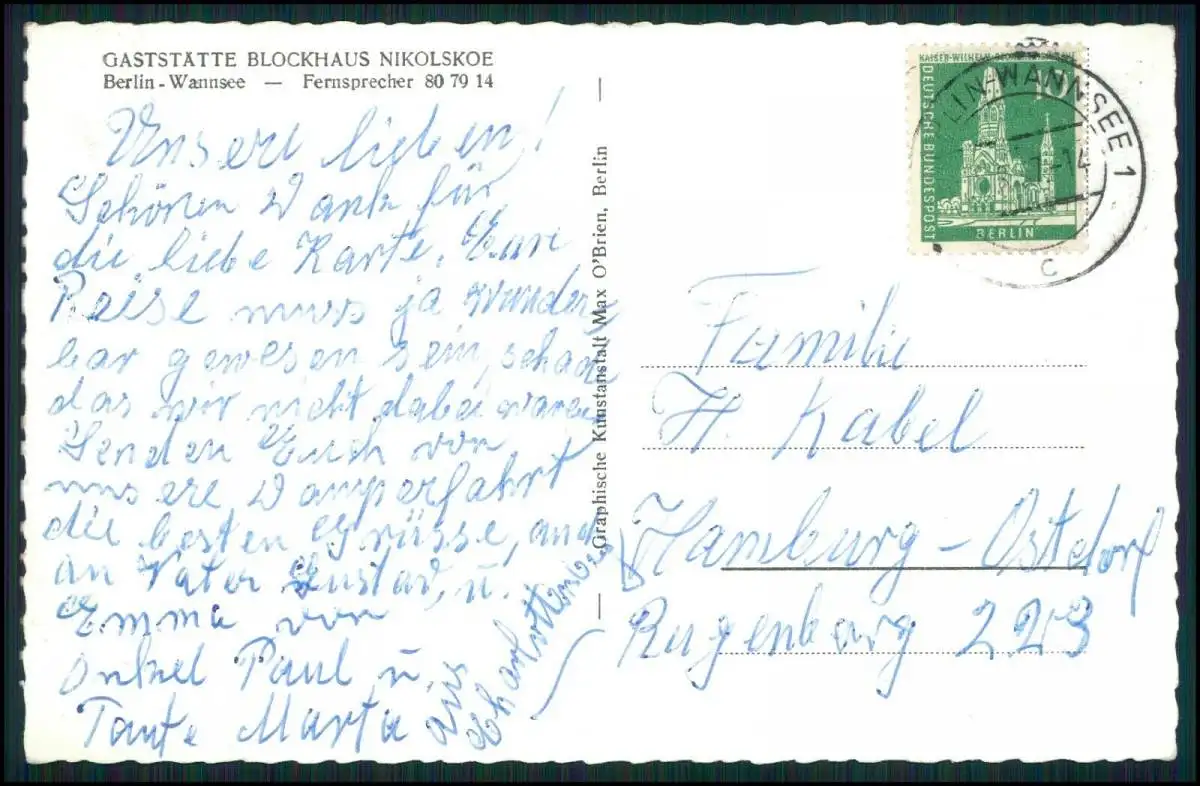 GASTSTÄTTE BLOCKHAUS NIKOLSKOE
Berlin-Wannsee — Fernsprecher 80 79 14
Unsere lieben!
Schönen Dank für
die liebe Karte. Eure
Raise muss ja wunder
bar gewesen sein, schade
das wir nicht dabei waren
Senden Euch von
unsere Dampferfahrt
die besten Grüsse, auch
an Vater Gustav, u.
Emma von
Onkel Paul u.
Tante Marta
aus
Graphische Kunstanstalt Max O'Brien, Berlin
KAISER-WILHELM-
DEUTSCHE BUNDESPOST
10
BERLIN
LIN-WANNSEE 1
-14
c
Familie
H. Kabel
Hamburg-Ostdorf
Rugenbarg 223